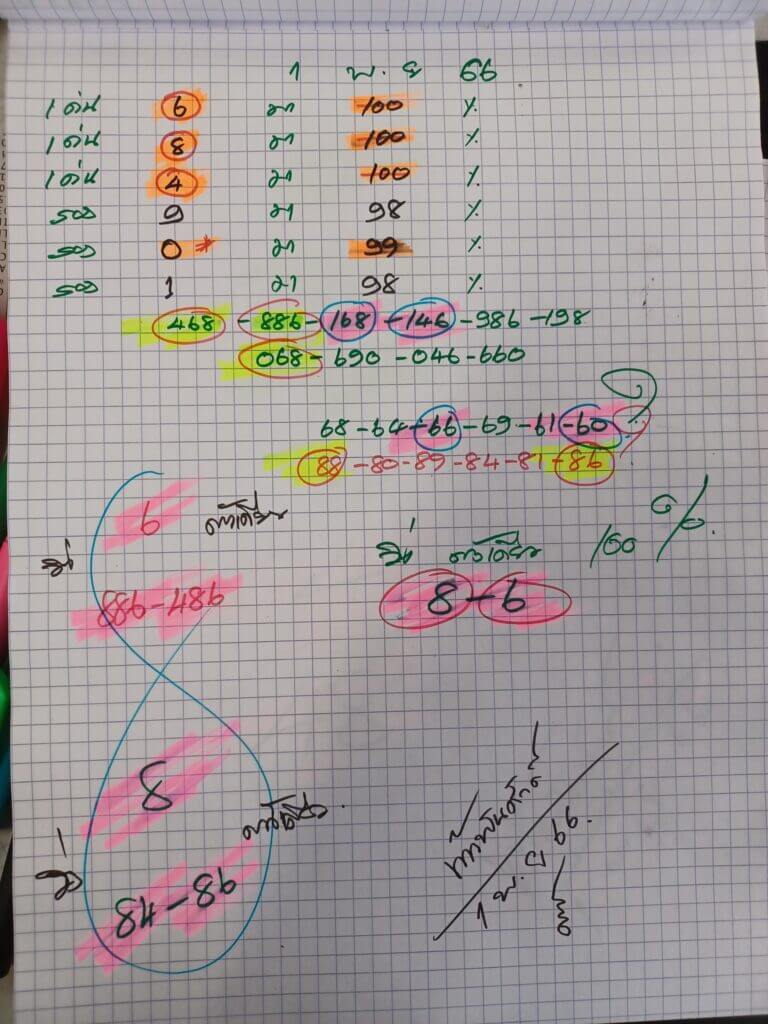 1 พ.ย 66
1 เด่น 6 มา 100 %
1 เด่น 8 มา 100 %
1 เด่น 4 มา 100 %
รอง 9 มา 98 %
รอง 0 * มา 99 %
รอง 1 มา 98 %
468 - 886 - 168 - 146 - 986 - 198
068 - 690 - 046 - 660
68 - 64 - 66 - 69 - 61 - 60
88 - 80 - 89 - 84 - 81 - 86
6 ตัวเดียว
วิ่ง ตัวเดียว 100 %
886 - 486
8 - 6
8
ตัวเดียว
84 - 86
1 พ.ย 66.